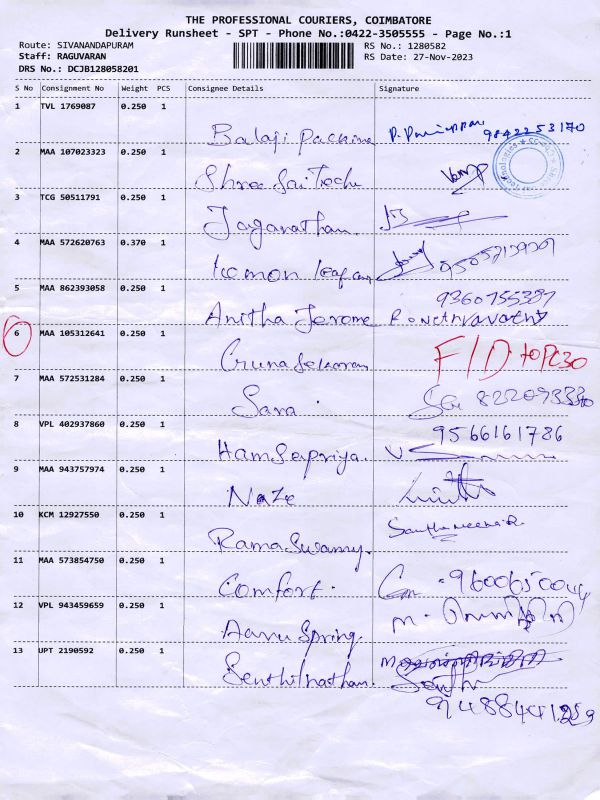 THE PROFESSIONAL COURIERS, COIMBATORE
Delivery Runsheet - SPT - Phone No.:0422-3505555 - Page No.:1
Route: SIVANANDAPURAM RS No.: 1280582
Staff: RAGUVARAN RS Date: 27-Nov-2023
DRS No.: DCJB128058201
S No Consignment No Weight PCS Consignee Details Signature
1 TVL 1769087 0.250 1
Balaji Packing 9842253170
2 MAA 107023323 0.250 1
Shree Sai Tech
3 TCG 50511791 0.250 1
Jaganathan.
4 MAA 572620763 0.370 1
5 MAA 862393058 0.250 1 9360755387
Anitha Jerome
6 MAA 105312641 0.250 1
F/D to PC30
7 MAA 572531284 0.250 1
Sara.
8 VPL 402937860 0.250 1 9566161786
Hamsapriya.
9 MAA 943757974 0.250 1
Naze
10 KCM 12927550 0.250 1
RamaSwamy.
11 MAA 573854750 0.250 1
Comfort. 9600650044
12 VPL 943459659 0.250 1
Aanu Spring.
13 UPT 2190592 0.250 1
Senthilnathan.